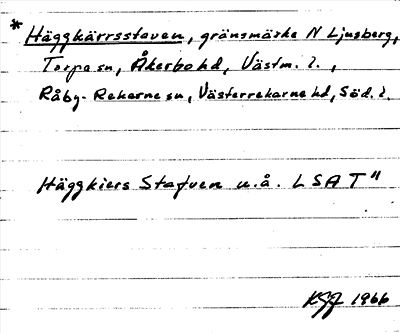 * Häggkärrsstaven, gränsmärke N Ljusberg,
Torpa sn, Åkerbo hd, Västm. l.,
Råby-Rekarne sn, Västerrekarne hd, Söd. l.
Häggkiers Stafven u.å. LSA T"
1966